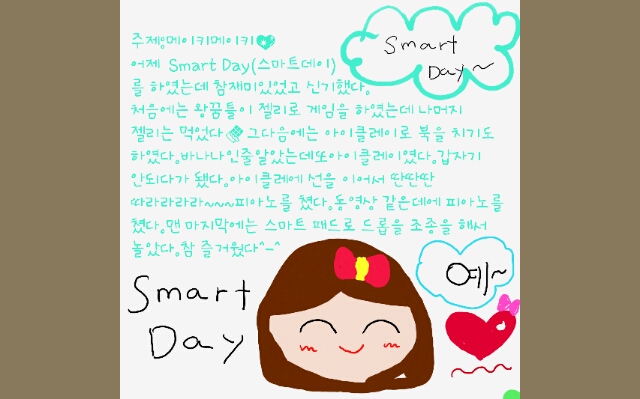 주제:메이키메이키
Smart
Day~
어제 Smart Day(스마트데이)
를 하였는데 참재미있었고 신기했다.
처음에는 왕꿈틀이 젤리로 게임을 하였는데 나머지
젤리는 먹었다 그다음에는 아이클레이로 북을 치기도
하였다.바나나인줄알았는데또아이클레이였다.갑자기
안되다가 됐다.아이클레에 선을 이어서 딴딴딴
따라라라라~~~피아노를 쳤다.동영상 같은데에 피아노를
쳤다.맨 마지막에는 스마트 패드로 드롭을 조종을 해서
놀았다.참 즐거웠다^-^
예~
Smart
Day